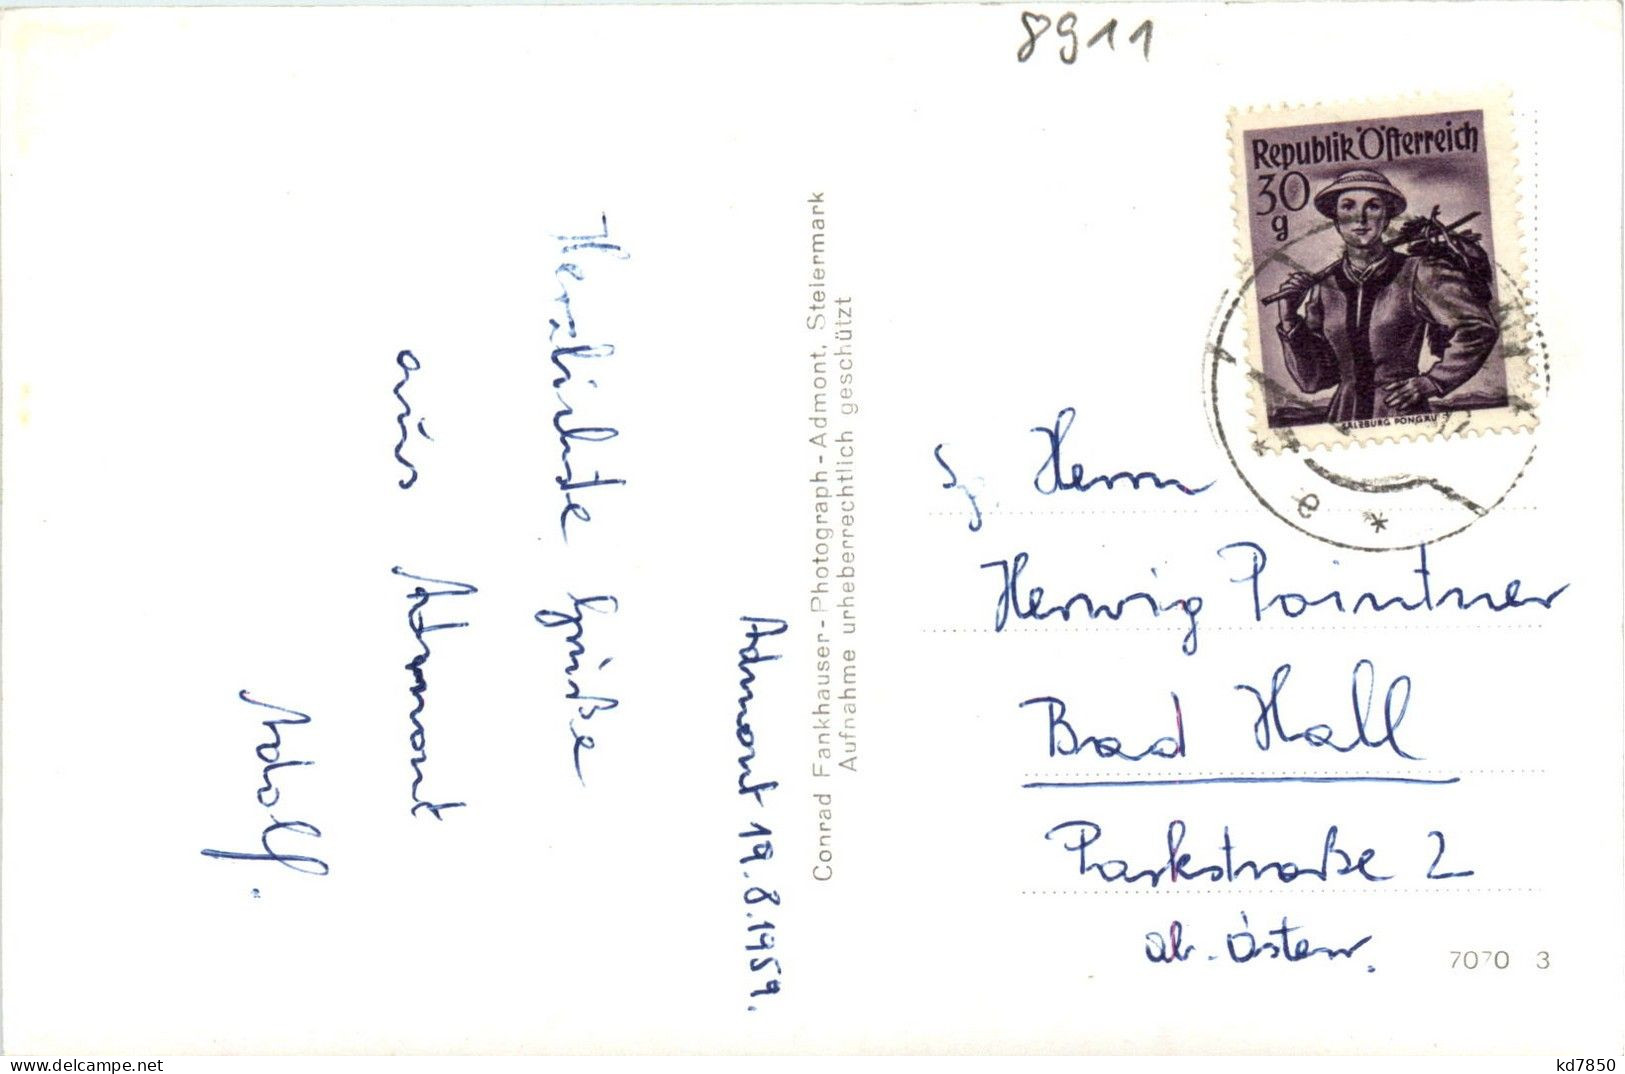 8911
Republik Österreich
30
g
SALZBURG PONGAU
e *
Admont 19.8.1959.
Herzlichste Grüße
aus Admont
Adolf.
Conrad Fankhauser-Photograph-Admont, Steiermark
Aufnahme urheberrechtlich geschützt
Herrn
Herwig Pointner
Bad Hall
Parkstraße 2
ob. Österr.
7070 3
kd7850